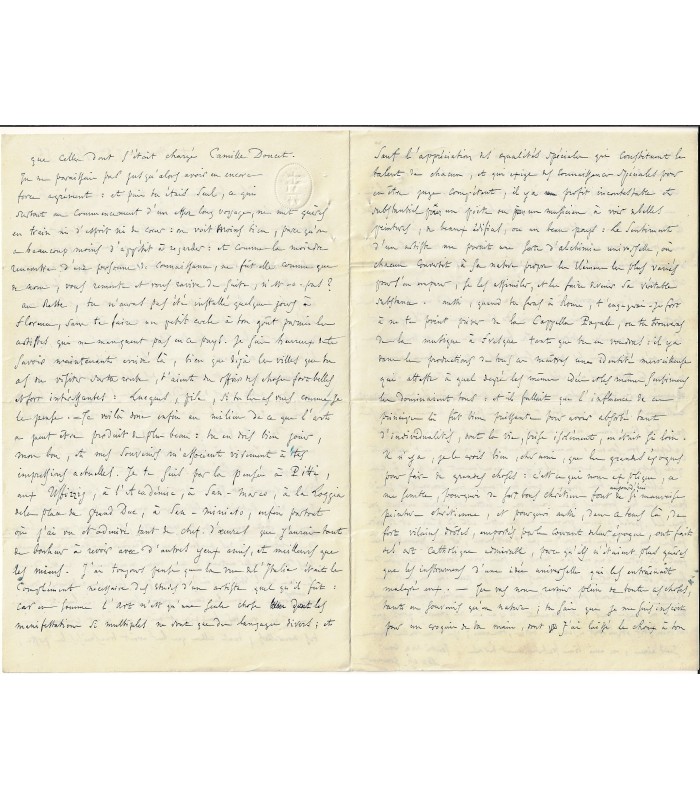 que celles dont s'était chargé Camille Doucet.
Tu ne paraissais pas jusqu'alors avoir eu encore
force agrément : et puis tu étais seul, ce qui
surtout au commencement d'un assez long voyage, ne met guères
en train ni d'esprit ni de cœur : on voit moins bien, parce qu'on
a beaucoup moins d'appétit à regarder : et comme la moindre
rencontre d'une personne de connaissance, ne fût-elle connue que
de nom, vous remonte et vous ravive de suite, n'est-ce-pas ?
au reste, tu n'auras pas été installé quelques jours à
Florence, sans te faire un petit cercle à ton goût parmi les
artistes qui ne manquent pas en ce pays. Je suis heureux de te
savoir maintenant arrivé là, bien que déjà les villes que tu
as dû visiter sur ta route, t'aient dû offrir des choses fort belles
et fort intéressantes : Lucques, Pise, si tu les as vues comme je
le pense. — Te voilà donc enfin au milieu de ce que l'art
a peut être produit de plus beau : tu en dois bien jouir,
mon bon, et mes souvenirs m'associent vivement à tes
impressions actuelles. Je te suis par la pensée à Pitti,
aux Uffizzi, à l'Académie, à San-Marco, à la Loggia
de la place du Grand Duc, à San-Miniato, enfin partout
où j'ai vu et admiré tant de chefs d'œuvre que j'aurais tant
de bonheur à revoir avec d'autres yeux amis, et meilleurs que
les miens. J'ai toujours pensé que la vue de l'Italie était le
Complément nécessaire des études d'un artiste quel qu'il fût :
Car en somme l'Art n'est qu'une seule chose dont les
manifestations si multiples ne sont que des langages divers ; et
Sauf l'appréciation des qualités spéciales qui constituent le
talent de chacun, et qui exige des connaissances spéciales pour
en être juge compétent, il y a un profit incontestable et
substantiel pour un poète ou pour un musicien à voir de belles
peintures, de beaux édifices, ou un beau pays : le Sentiment
d'un artiste me paraît une sorte d'alchimie universelle, où
chacun convertit à sa nature propre les éléments les plus variés
pour s'en emparer, se les assimiler, et les faire devenir sa véritable
substance. — aussi, quand tu seras à Rome, t'engage-je fort
à ne te point priver de la Cappella Papale, où tu trouveras
de la musique à fresque tant que tu en voudras : il y a
dans les productions de tous ces maîtres une identité merveilleuse
qui atteste à quel degré les mêmes idées et les mêmes sentiments
les dominaient tous : et il fallait que l'influence de ces
principes là fût bien puissante pour avoir absorbé tant
d'individualités, dont la vie, prise isolément, n'était si loin.
Il n'y a, je le crois bien, cher ami, que les grandes époques
pour faire de grandes choses : c'est ce qui nous explique, à
me semble, pourquoi de fort bons chrétiens font aujourd'hui de si mauvaise
peinture chrétienne, et pourquoi aussi, dans ce tems là, de
fort vilains drôles, emportés par le courant de leur époque, ont fait
de l'art Catholique admirable, parce qu'ils n'étaient plus guères
que les instruments d'une idée universelle qui les entraînait
malgré eux. — Tu vas nous revenir plein de toutes ces choses,
tant en souvenirs qu'en nature ; tu sais que je me suis inscrit
pour un croquis de ta main, dont j'ai laissé le choix à ton